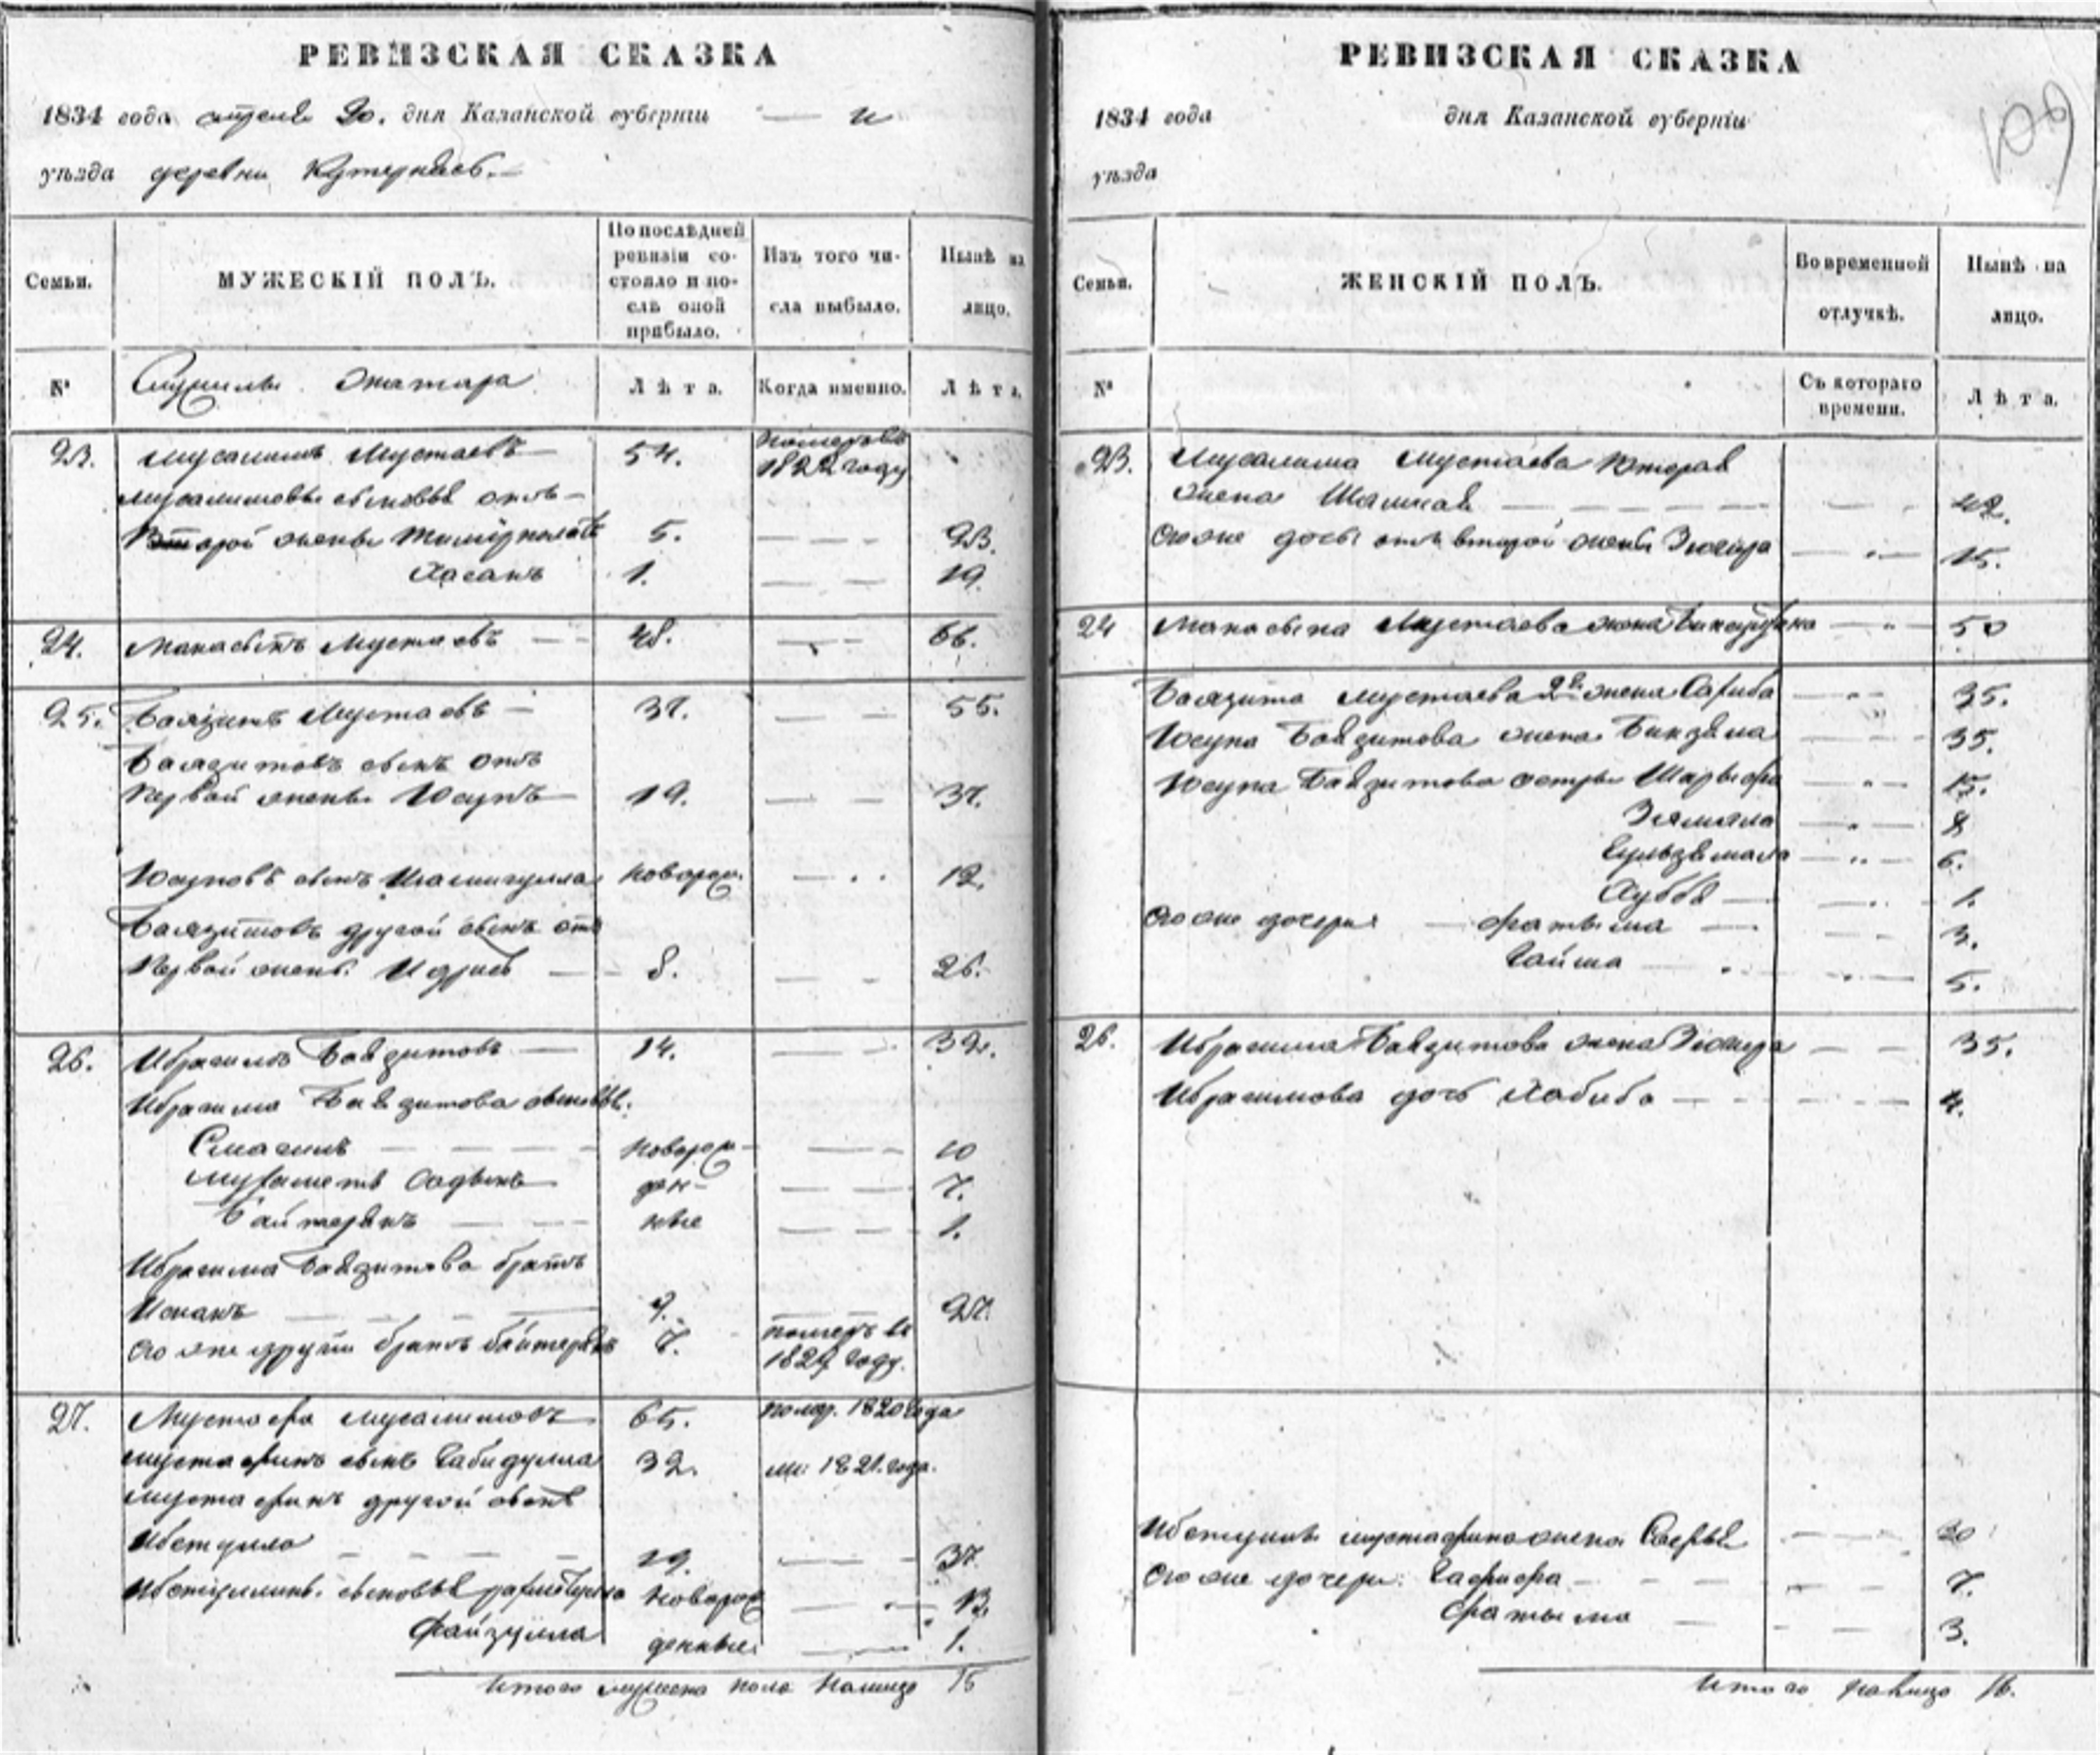 РЕВИЗСКАЯ СКАЗКА
1834 года апреля 20. дня Казанской губерніи — и
уѣзда деревни
Семьи.
МУЖЕСКІЙ ПОЛЪ.
По послѣдней ревизіи состояло и послѣ оной прибыло.
Изъ того числа выбыло.
Нынѣ на лицо.
№
Лѣта.
Когда именно.
Лѣта.
23. Мусалимъ Мустаевъ — 54. померъ въ 1822 году
Мусалимовы сыновья отъ —
Второй жены 5. — — — 23.
Хасанъ 1. — — 19.
24. Манасыпъ Мустаевъ — — 48. — — 66.
25. Баязитъ Мустаевъ — 37. — — 55.
Баязитовъ сынъ отъ
Первой жены Юсупъ — 19. — — 37.
Юсуповъ сынъ новорож. — 12.
Баязитовъ другой сынъ отъ
Первой жены Идрисъ — 8. — — 26.
26. Ибрагимъ Баязитовъ — 14. — — 32.
Ибрагима Баязитова сыновья.
Смагилъ — — — новорож- — — 10
Мухаметъ Садыкъ — ден- — — 7.
Байтерякъ — — ные — — 1.
Ибрагима Баязитова братъ
Исхакъ — — — 9. — — 27.
Его же другой братъ Байтерякъ 7. померъ въ 1827 году.
27. Мустафа Мусалимовъ 65. помер. 1820 года
Мустафинъ сынъ Габидулла 32. 1821. года.
Мустафинъ другой сынъ
Ибетулла — — — 19. — — 37.
Ибетуллины сыновья новорож — 13.
Файзулла денные — 1.
Итого мужеска пола налицо 15
РЕВИЗСКАЯ СКАЗКА
109
1834 года дня Казанской губерніи
уѣзда
Семьи.
ЖЕНСКІЙ ПОЛЪ.
Во временной отлучкѣ.
Нынѣ на лицо.
№
Съ котораго времени.
Лѣта.
23. Мусалима Мустаева вторая
жена — — — 42.
Его же дочь отъ второй жены Зюгира — 15.
24 Манасыпа Мустаева жена — 50
Баязита Мустаева 2я жена — 35.
Юсупа Баязитова жена — 35.
Юсупа Баязитова сестры Шарыфа — 15.
Зямиля — 8
Гульзямала — 6.
Хубба — 1.
Его же дочери — Фатыма — 3.
Гайша — 5.
26. Ибрагима Баязитова жена Зюгира — — 35.
Ибрагимова дочь Хабиба — — 4.
Ибетуллы Мустафина жена — 30
Его же дочери: Гафифа — — 7.
Фатыма — — 3.
Итого налицо 16.